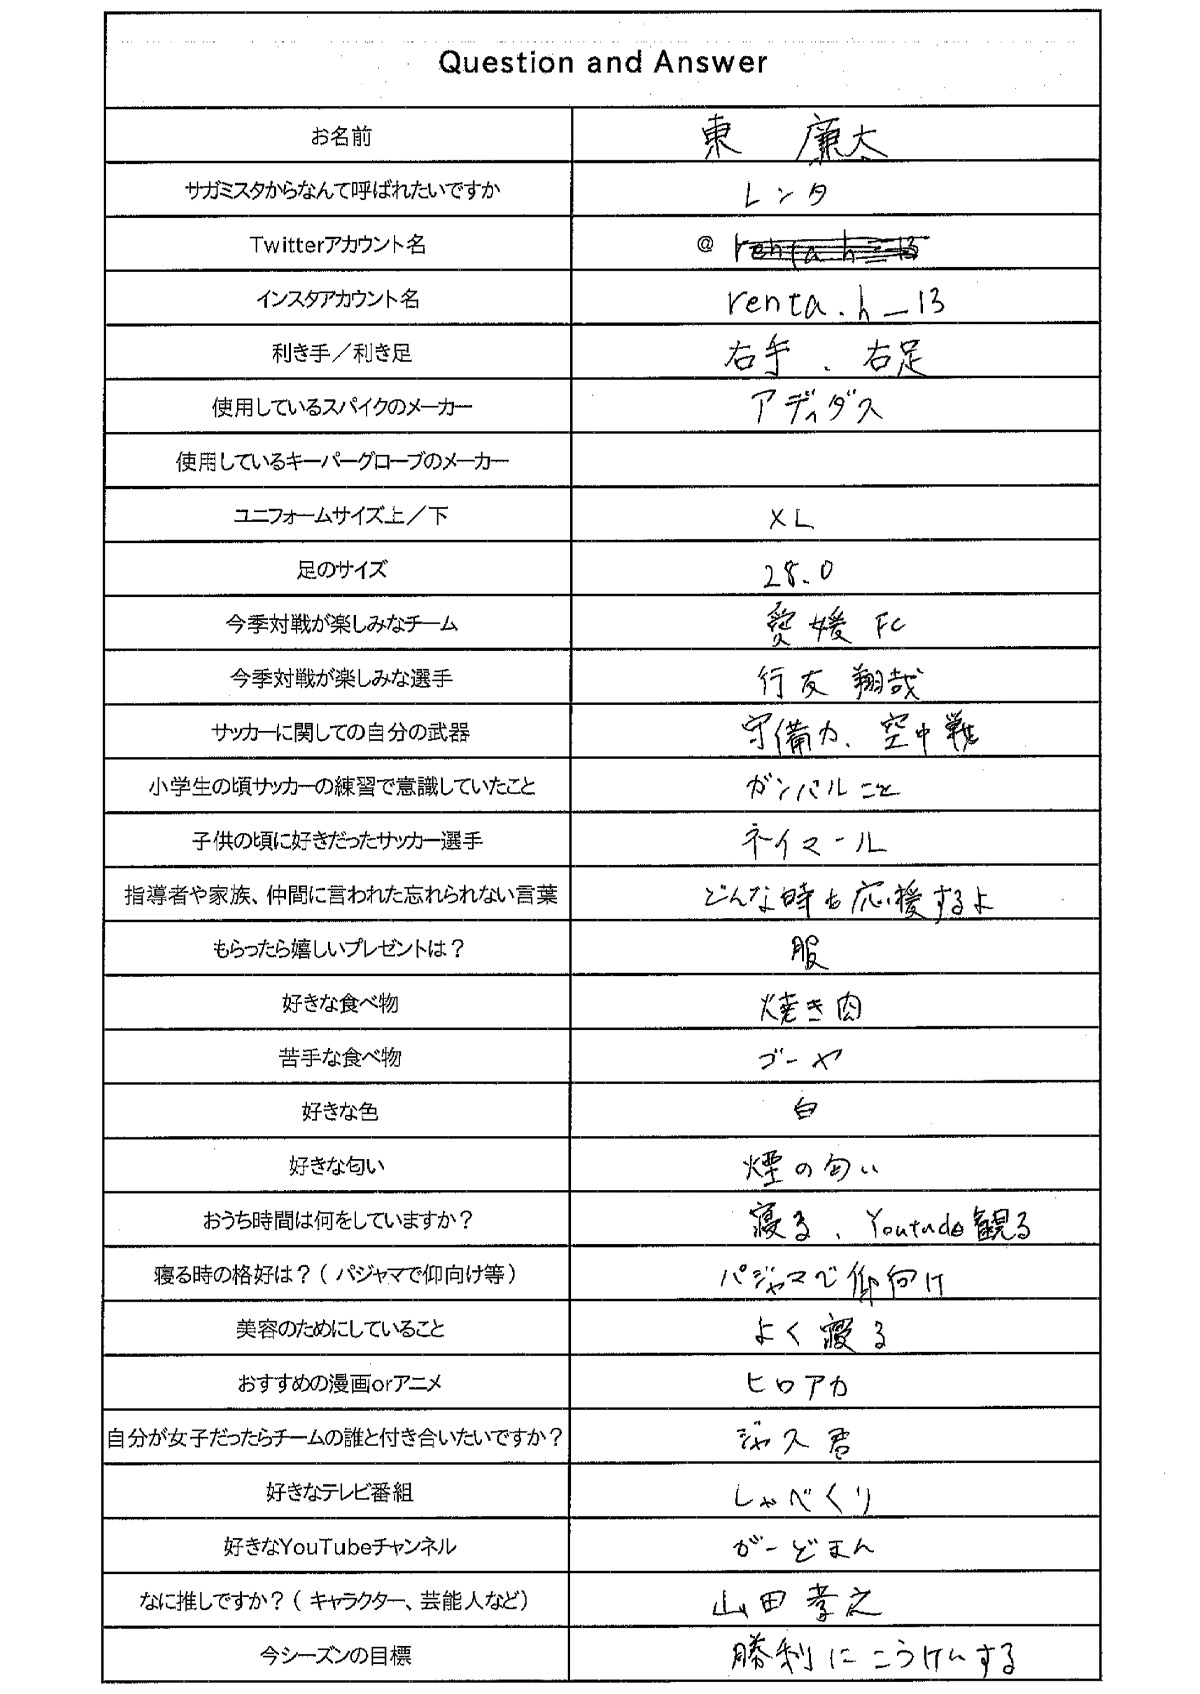 Question and Answer
お名前 東 廉太
サガミスタからなんて呼ばれたいですか レンタ
Twitterアカウント名 @ renta.h_13
インスタアカウント名 renta.h_13
利き手／利き足 右手、右足
使用しているスパイクのメーカー アディダス
使用しているキーパーグローブのメーカー
ユニフォームサイズ上／下 XL
足のサイズ 28.0
今季対戦が楽しみなチーム 愛媛FC
今季対戦が楽しみな選手 行友翔哉
サッカーに関しての自分の武器 守備力、空中戦
小学生の頃サッカーの練習で意識していたこと ガンバルこと
子供の頃に好きだったサッカー選手 ネイマール
指導者や家族、仲間に言われた忘れられない言葉 どんな時も応援するよ
もらったら嬉しいプレゼントは？ 服
好きな食べ物 焼き肉
苦手な食べ物 ゴーヤ
好きな色 白
好きな匂い 煙の匂い
おうち時間は何をしていますか？ 寝る、Youtube観る
寝る時の格好は？（パジャマで仰向け等） パジャマで仰向け
美容のためにしていること よく寝る
おすすめの漫画orアニメ ヒロアカ
自分が女子だったらチームの誰と付き合いたいですか？ ジャス君
好きなテレビ番組 しゃべくり
好きなYouTubeチャンネル がーどまん
なに推しですか？（キャラクター、芸能人など） 山田孝之
今シーズンの目標 勝利にこうけんする